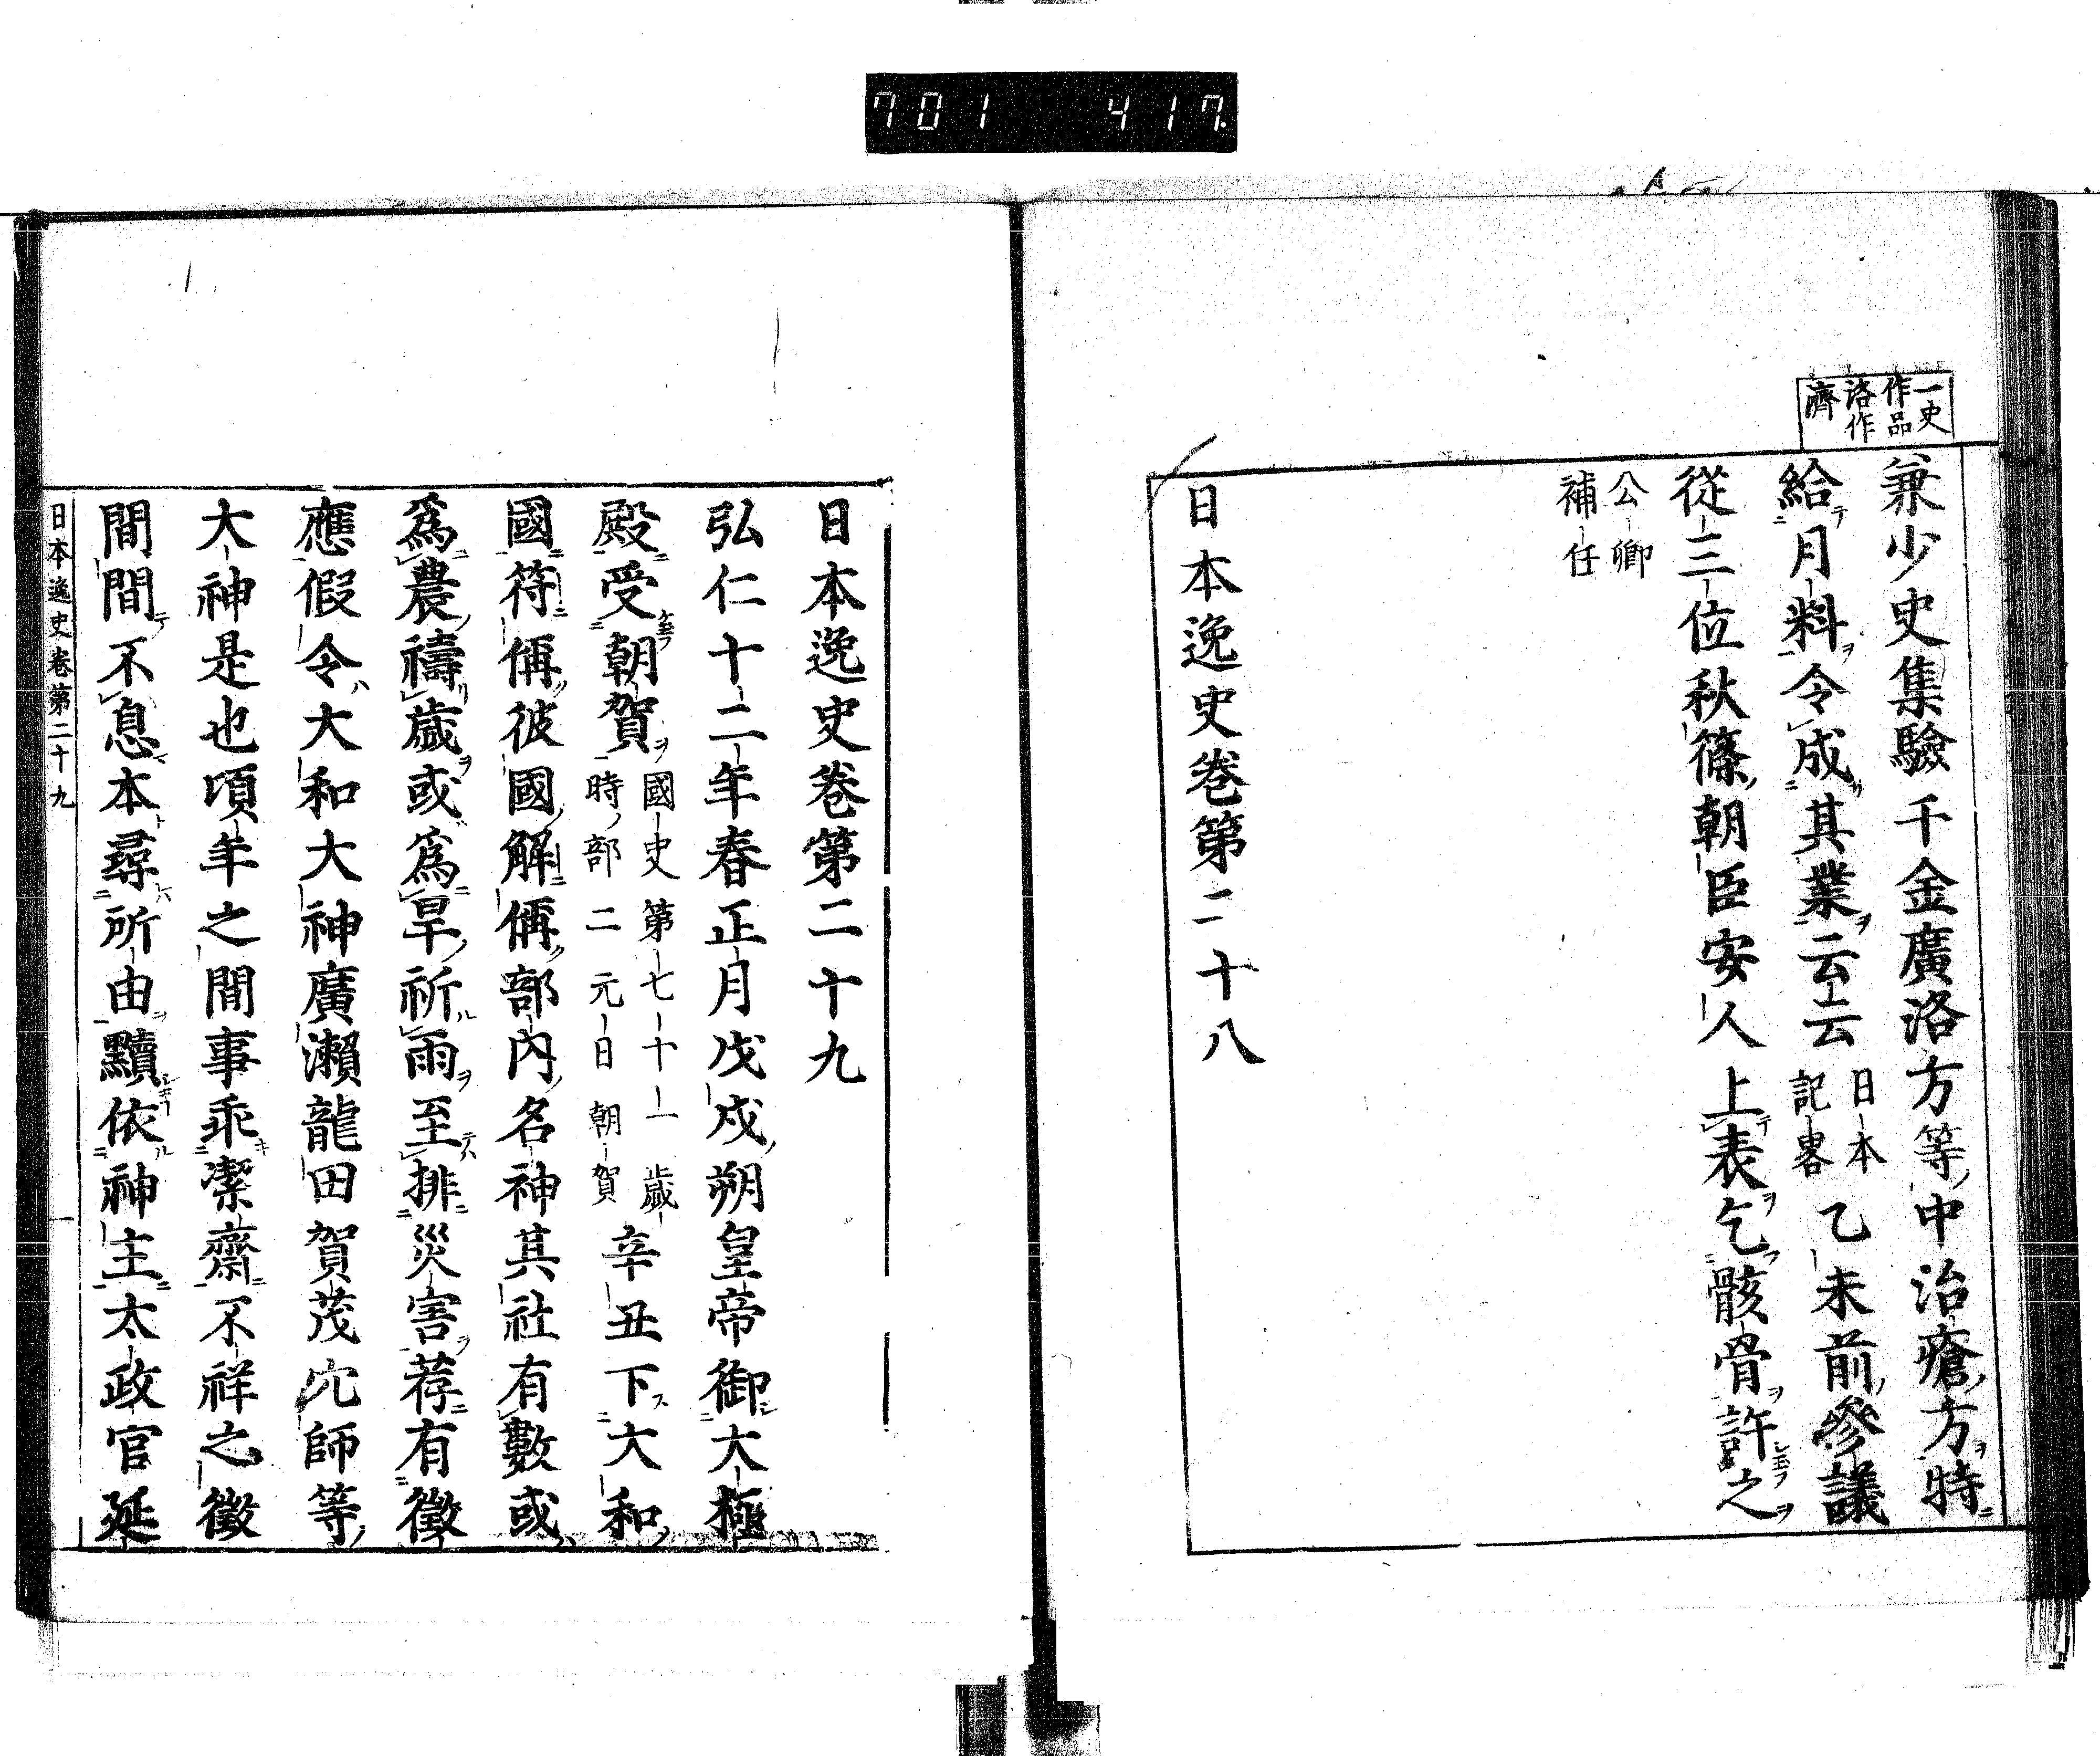 701 417.
一史
作品
洛作
濟
兼少史集驗千金廣洛方等中治瘡方特
給月料令成其業云云日本記畧乙未前參議
從三位秋篠朝臣安人上表乞骸骨許之
公卿
補任
日本逸史卷第二十八
日本逸史卷第二十九
弘仁十二年春正月戊戌朔皇帝御大極
殿受朝賀國史第七十一歲時部二元日朝賀辛丑下大和
國符偁彼國解偁部內名神其社有數或
爲農禱歲或爲旱祈雨至排災害荐有徵
應假令大和大神廣瀨龍田賀茂穴師等
大神是也頃年之間事乖潔齋不祥之徵
間間不息本尋所由黷依神主太政官延
日本逸史卷第二十九